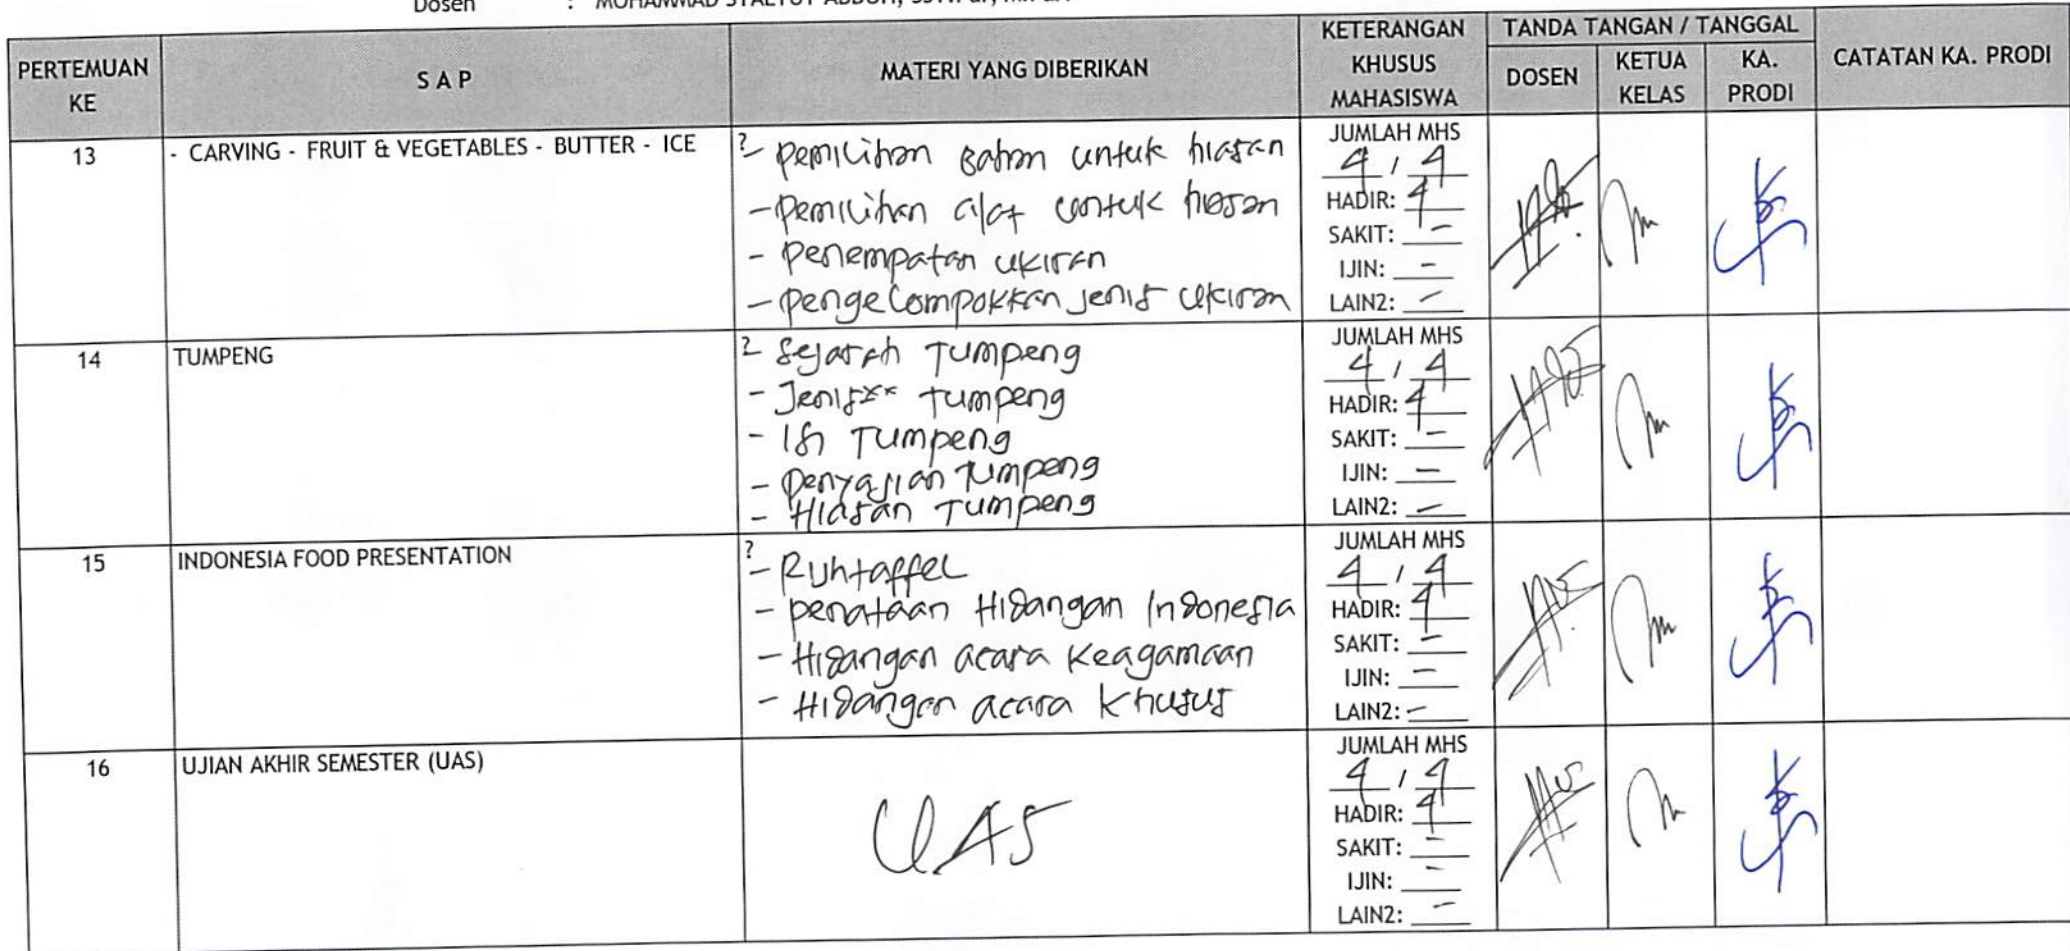 Dosen :
PERTEMUAN KE
S A P
MATERI YANG DIBERIKAN
KETERANGAN KHUSUS MAHASISWA
TANDA TANGAN / TANGGAL
DOSEN
KETUA KELAS
KA. PRODI
CATATAN KA. PRODI
13
- CARVING - FRUIT & VEGETABLES - BUTTER - ICE
?
- Pemilihan Bahan untuk hiasan
- Pemilihan alat untuk hiasan
- Penempatan ukiran
- Pengelompokkan jenis ukiran
JUMLAH MHS
4 / 4
HADIR: 4
SAKIT: -
IJIN: -
LAIN2: -
14
TUMPENG
?
- Sejarah Tumpeng
- Jenis** tumpeng
- Isi Tumpeng
- Penyajian Tumpeng
- Hiasan Tumpeng
JUMLAH MHS
4 / 4
HADIR: 4
SAKIT: -
IJIN: -
LAIN2: -
15
INDONESIA FOOD PRESENTATION
?
- penataan Hidangan Indonesia
- Hidangan acara Keagamaan
- Hidangan acara Khusus
JUMLAH MHS
4 / 4
HADIR: 4
SAKIT: -
IJIN: -
LAIN2: -
16
UJIAN AKHIR SEMESTER (UAS)
UAS
JUMLAH MHS
4 / 4
HADIR: 4
SAKIT: -
IJIN: -
LAIN2: -